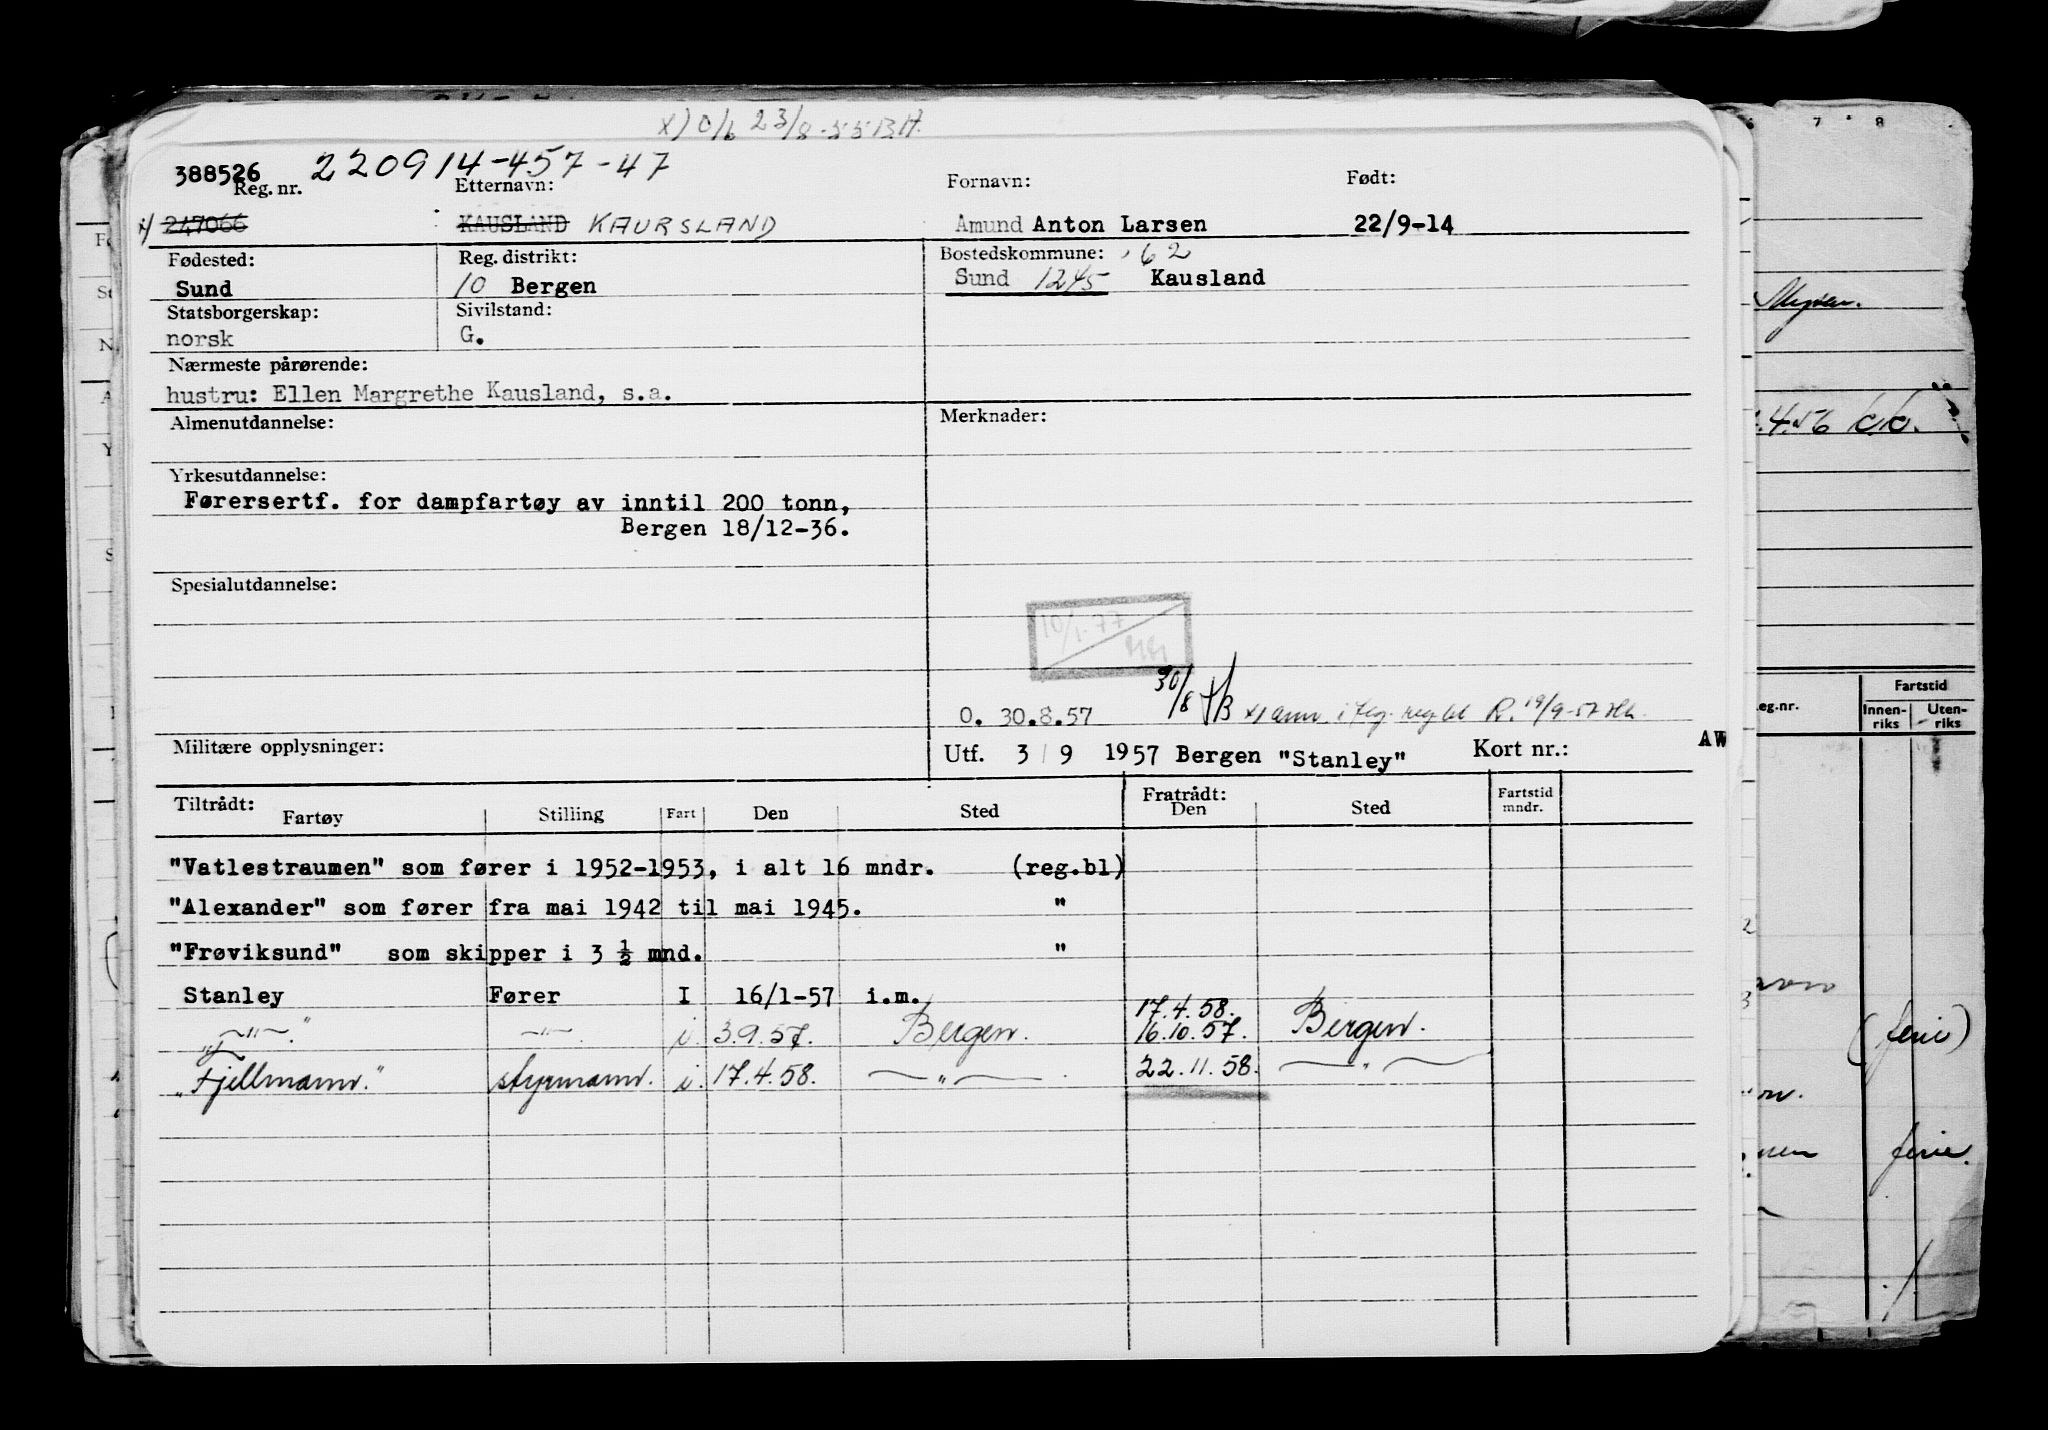 x) O/b 23/8-55 BH.
388526 220914-457-47
Reg. nr. Etternavn: Fornavn: Født:
x) 247066 KAUSLAND KAURSLAND Amund Anton Larsen 22/9-14
Fødested: Reg. distrikt: Bostedskommune: 62
Sund 10 Bergen Sund 1245 Kausland
Statsborgerskap: Sivilstand:
norsk G.
Nærmeste pårørende:
hustru: Ellen Margrethe Kausland, s.a.
Almenutdannelse: Merknader:
Yrkesutdannelse:
Førersertf. for dampfartøy av inntil 200 tonn,
Bergen 18/12-36.
Spesialutdannelse:
10/1.77
30/8
O. 30.8.57 x) anm. i flg. reg.bl R. 19/9-57
Militære opplysninger: Utf. 3/9 1957 Bergen "Stanley" Kort nr.: AW
Tiltrådt: Fratrådt: Fartstid
Fartøy Stilling Fart Den Sted Den Sted mndr.
"Vatlestraumen" som fører i 1952-1953, i alt 16 mndr. (reg.bl)
"Alexander" som fører fra mai 1942 til mai 1945. "
"Frøviksund" som skipper i 3 ½ mnd. "
Stanley Fører I 16/1-57 i.m.
17.4.58.
" —"— " —"— i. 3.9.57. Bergen. 16.10.57. Bergen.
"Fjellmann." styrmann. i. 17.4.58. —"— 22.11.58. —"—
7 8
Mysen.
.4.56
eg.nr. Fartstid
Innenriks Utenriks
(ferie)
ferie.